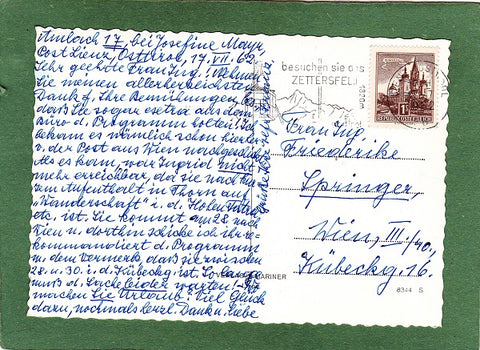 Amlach 17, bei Josefine Mayr,
Post Lienz, Osttirol, 17.VII.62
Sehr geehrte Frau Ing.! Nehmen
Sie meinen allerherzlichsten
Dank f. Ihre Bemühungen,
daß Sie sogar extra aus dem
Büro d. Programm holten! Ich
bekam es nämlich schon hierher
v. der Post aus Wien nachgeschickt.
Als es kam, war Ingrid nicht
mehr erreichbar, da sie nach
zum Aufenthalt in Thorn auf
"Wanderschaft" i. d. Hohen Tatra
etc. ist. Sie kommt am 28. nach
Wien u. dorthin schicke ich ihr
kommandiert d. Programm
m. dem Vermerk, daß sie zwischen
28. u. 30. i. d. Kübeckg. ist. Solange
muß d. Sache leider warten!
machen Sie Urlaub? Viel Glück
dazu, nochmals herzl. Dank u. liebe
Grüße Ihre
besuchen sie das
ZETTERSFELD
REPUBLIK ÖSTERREICH
Frau Ing.
Friederike
Springer,
Wien, III./40,
Kübeckg. 16.
8344 S